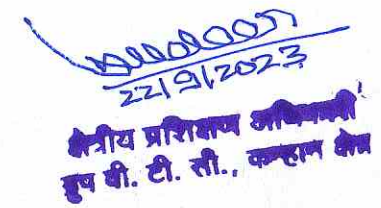 22/9/2023
क्षेत्रीय प्रशिक्षण अधिकारी
ग्रुप वी. टी. सी., कन्हान क्षेत्र